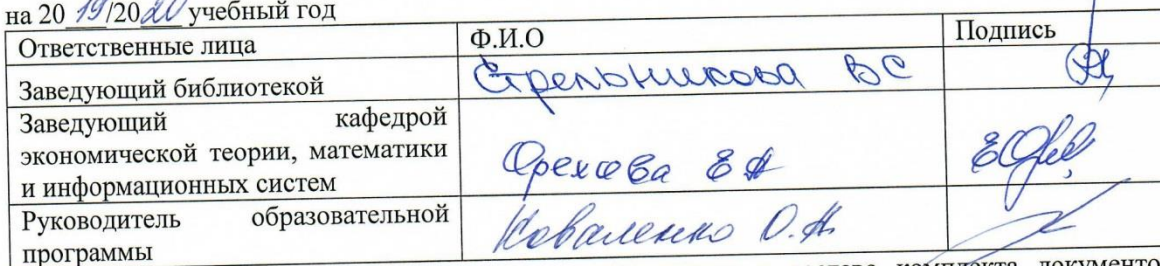 на 20 19/2020 учебный год
Ответственные лица Ф.И.О Подпись
Заведующий библиотекой Стрельникова ВС
Заведующий кафедрой
экономической теории, математики
и информационных систем Орехова ЕА
Руководитель образовательной
программы Коваленко О.Н.
комплекта документо